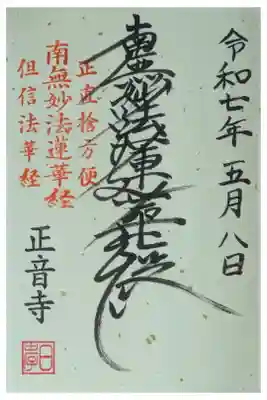 令和七年 五月八日
南無妙法蓮華経
正直捨方便
南無妙法蓮華経
但信法華経
正音寺